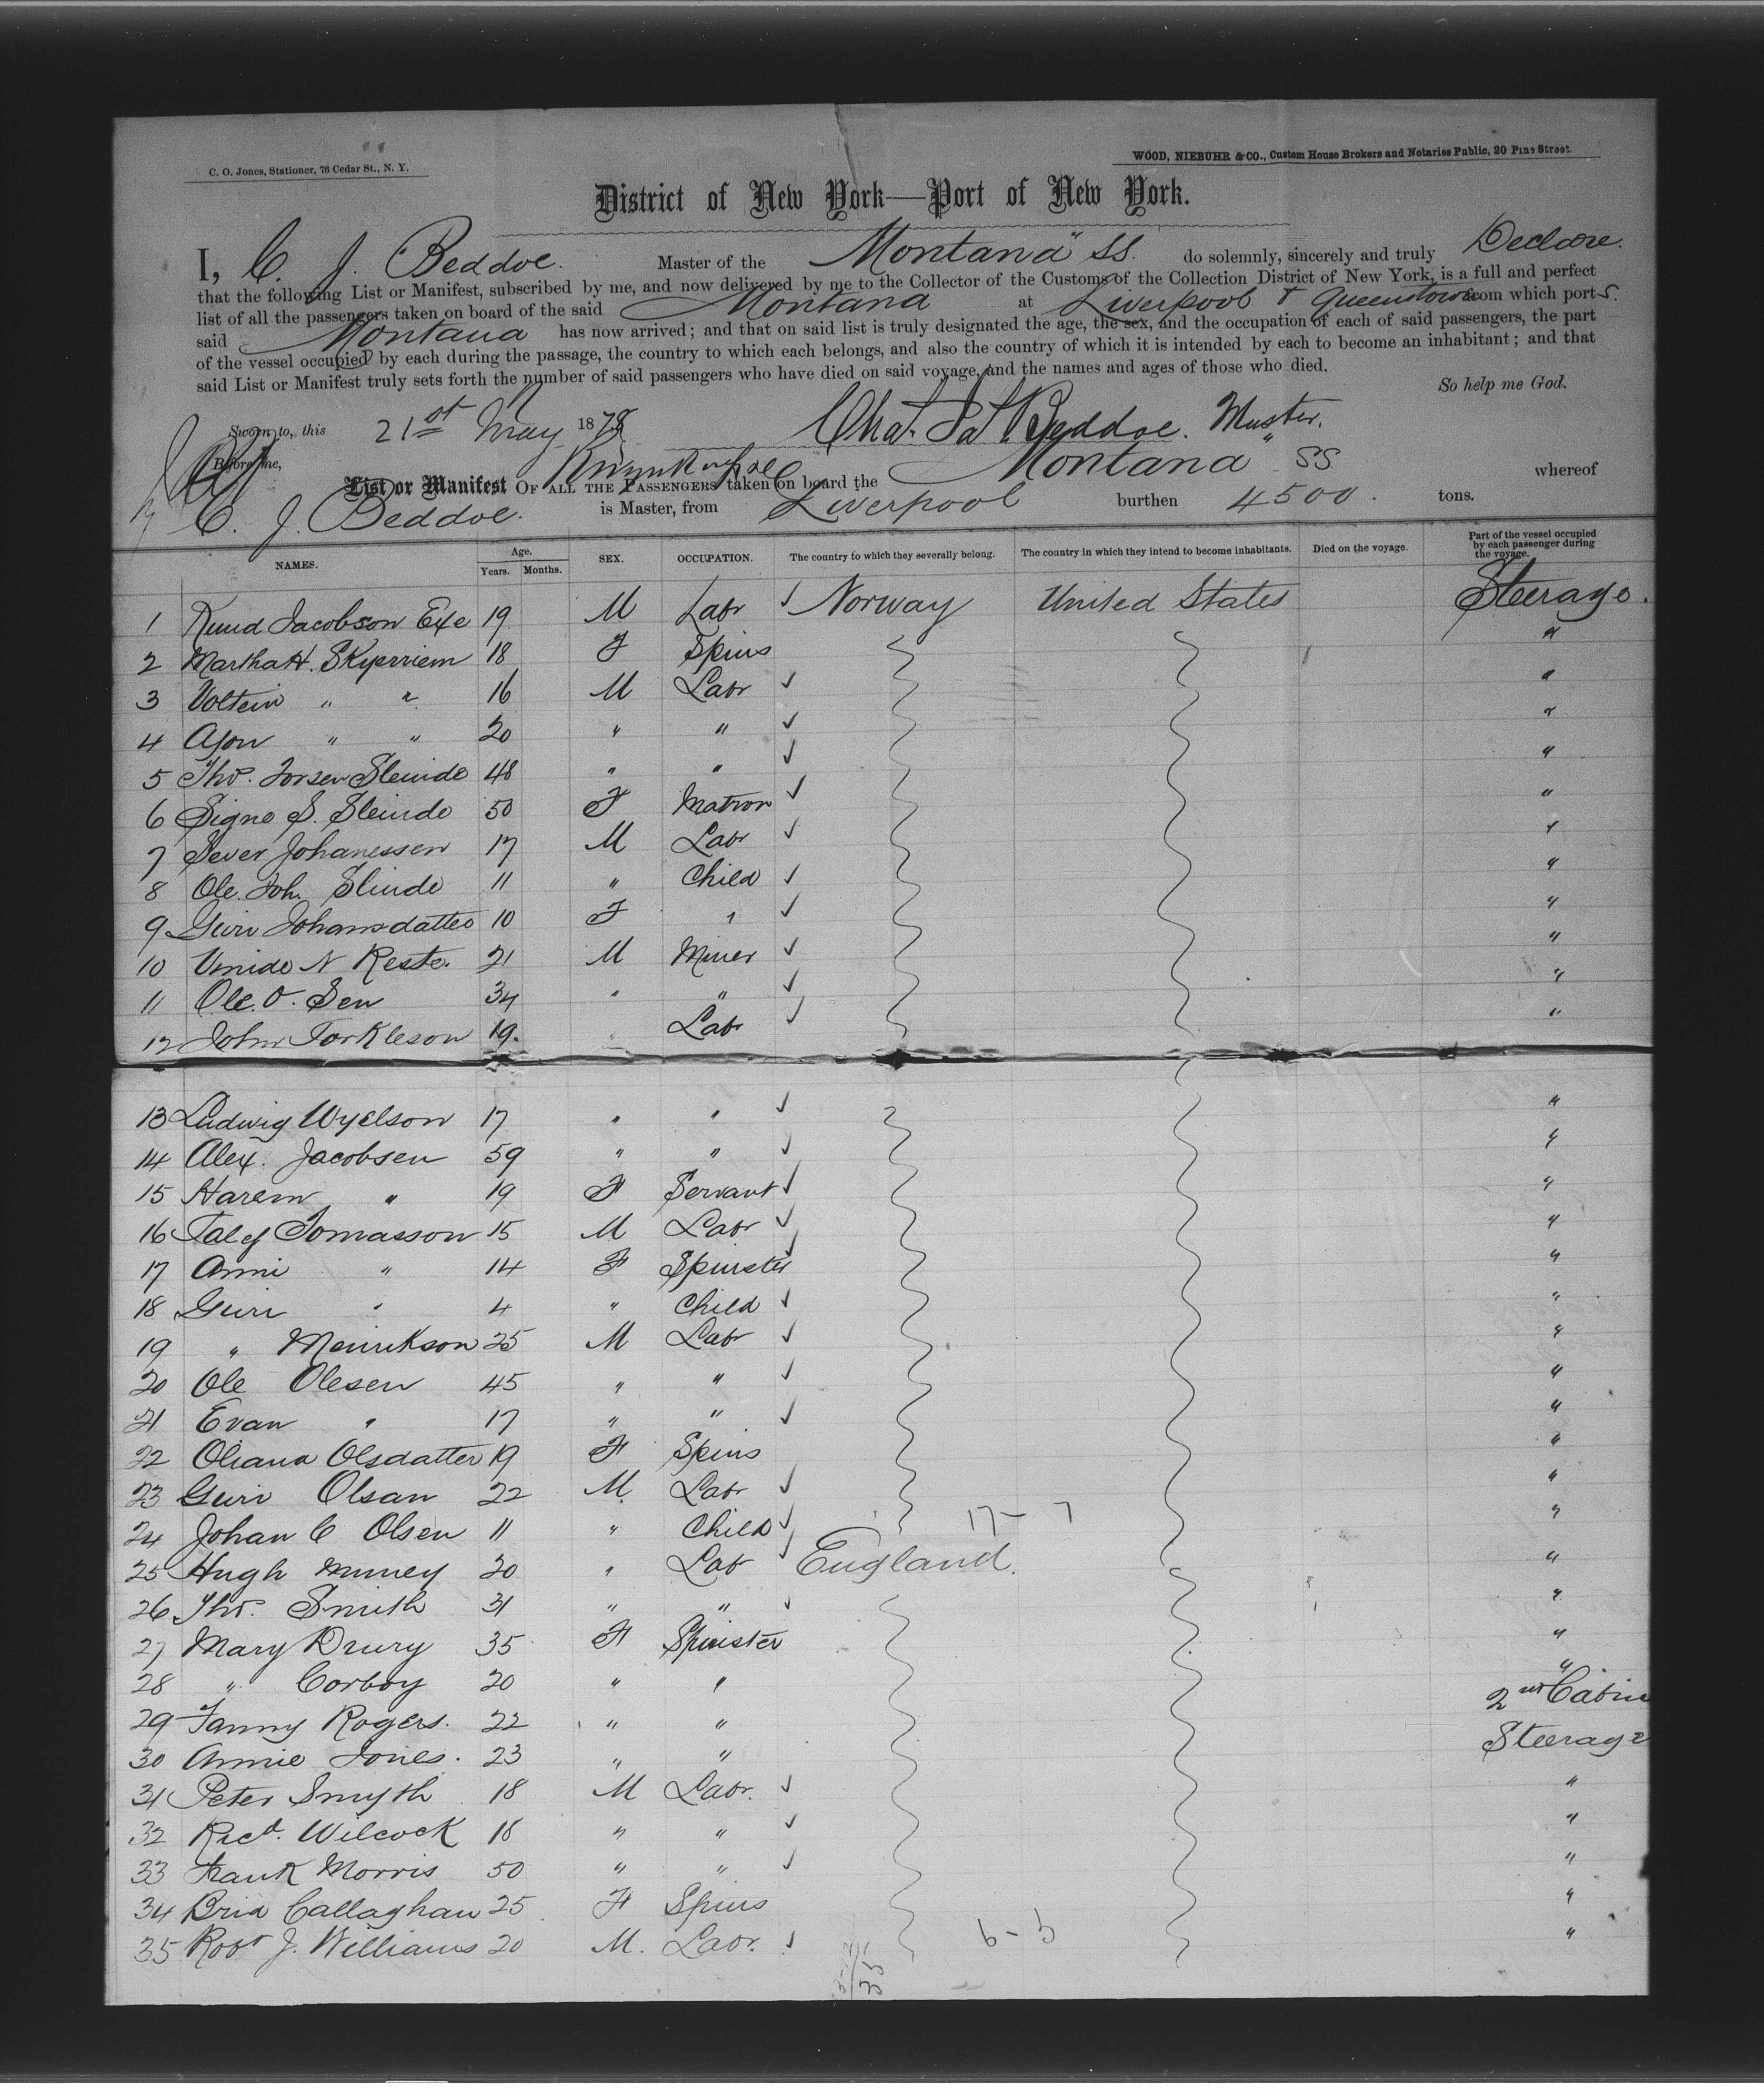 C. O. Jones, Stationer, 76 Cedar St., N. Y.
WOOD, NIEBUHR & CO., Custom House Brokers and Notaries Public, 20 Pine Street.
District of New York—Port of New York.
I, C. J. Beddoe. Master of the "Montana" SS. do solemnly, sincerely and truly Declare.
that the following List or Manifest, subscribed by me, and now delivered by me to the Collector of the Customs of the Collection District of New York, is a full and perfect
list of all the passengers taken on board of the said Montana at Liverpool & Queenstown from which ports.
said Montana has now arrived; and that on said list is truly designated the age, the sex, and the occupation of each of said passengers, the part
of the vessel occupied by each during the passage, the country to which each belongs, and also the country of which it is intended by each to become an inhabitant; and that
said List or Manifest truly sets forth the number of said passengers who have died on said voyage, and the names and ages of those who died.
So help me God.
Sworn to, this 21st May 1878 Chas. Beddoe. Master.
Before me,
List or Manifest OF ALL THE PASSENGERS taken on board the "Montana" SS whereof
C. J. Beddoe. is Master, from Liverpool burthen 4500. tons.
NAMES. Age. Years. Months. SEX. OCCUPATION. The country to which they severally belong. The country in which they intend to become inhabitants. Died on the voyage. Part of the vessel occupied by each passenger during the voyage.
1 Knud Jacobson Exe 19 M Labr Norway United States Steerage.
2 Martha H. Skyerriem 18 F Spins "
3 Voltein " " 16 M Labr "
4 " " 20 " " "
5 Tho. Slemide 48 " " "
6 Signe S. Sleinde 50 F Matron "
7 Sever Johanessen 17 M Labr "
8 Ole. Joh. Slinde 11 " Child "
9 Guri Johansdatter 10 F " "
10 N Reste. 21 M Miner "
11 Ole. O. Sen 34 " " "
12 John Torkleson 19. " Labr "
13 Ludwig Wyelson 17 " " "
14 Alex. Jacobsen 59 " " "
15 Harem " 19 F Servant "
16 Talef Tomasson 15 M Labr "
17 Anni " 14 F Spinster "
18 Guri " 4 " Child "
19 " Menrikson 25 M Labr "
20 Ole Olesen 45 " " "
21 Evan " 17 " " "
22 Oliana Olsdatter 19 F Spins "
23 Guri Olsan 22 M. Labr "
24 Johan C Olsen 11 " Child 17 - 7 "
25 Hugh 20 " Labr England. "
26 Tho. Smith 31 " " "
27 Mary Drury 35 F Spinster "
28 " Corboy 20 " " "
29 Fanny Rogers. 22 " " 2nd Cabin
30 Annie Jones. 23 " " Steerage
31 Peter Smyth 18 M Labr. "
32 Ricd. Wilcock 18 " " "
33 Frank Morris 50 " " "
34 Brid Callaghan 25 F Spins "
35 Robt J. Williams 20 M. Labr. 6 - 5 "